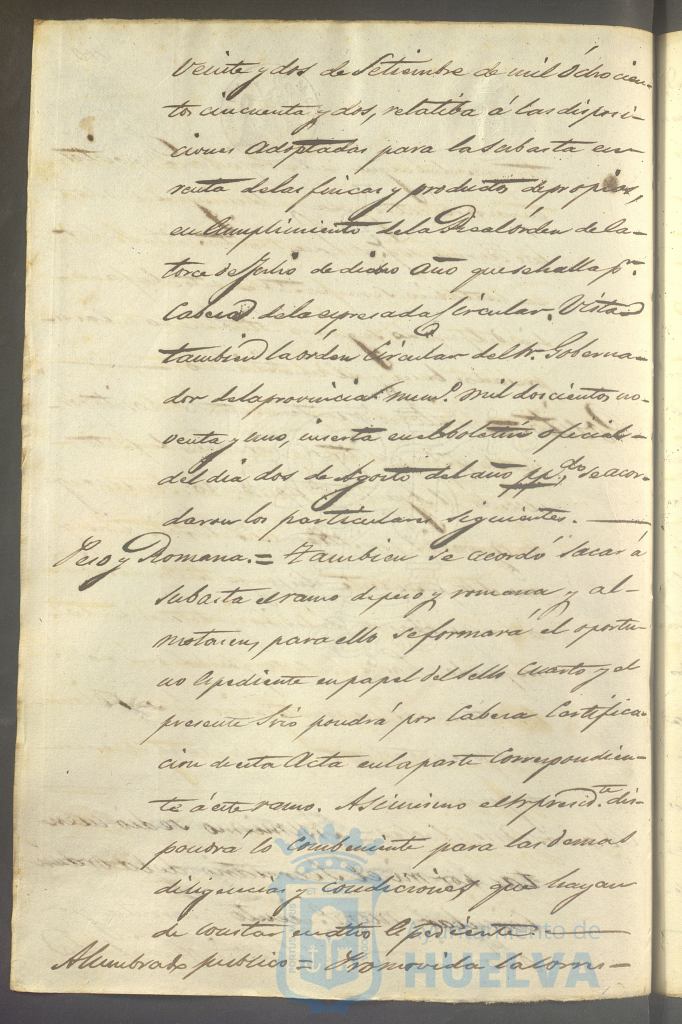 Veinte y dos de Setiembre de mil Ochocien-
tos cincuenta y dos, relatiba á las disposi-
ciones Adoptadas para la subasta en
renta de las fincas y productos de propios,
en Cumplimiento de la Real órden de ca-
torce de Julio de dicho Año que se halla pr.
Cabeza de la espresada Circular. Vista
tambien la órden Circular del Sr. Goberna-
dor de la provincia numo. mil doscientos no-
venta y uno, inserta en el boletin oficial
del dia dos de Agosto del año ppdo, se acor-
daron los particulares siguientes.
Peso y Romana. = Tambien se acordó sacar á
subasta el ramo de peso y romana y al-
motacen, para ello se formará el oportu-
no Epediente en papel del Sello Cuarto y el
presente Srio pondrá por Cabeza Certifica-
cion de esta Acta en la parte Correspondien-
te á este ramo. Asimismo el Sr. presidte. dis-
pondrá lo combeniente para las demas
diligencias y condiciones que hayan
de constar en dho Epediente
Alumbrado publico = Promovida la com-
Ayuntamiento de
HUELVA